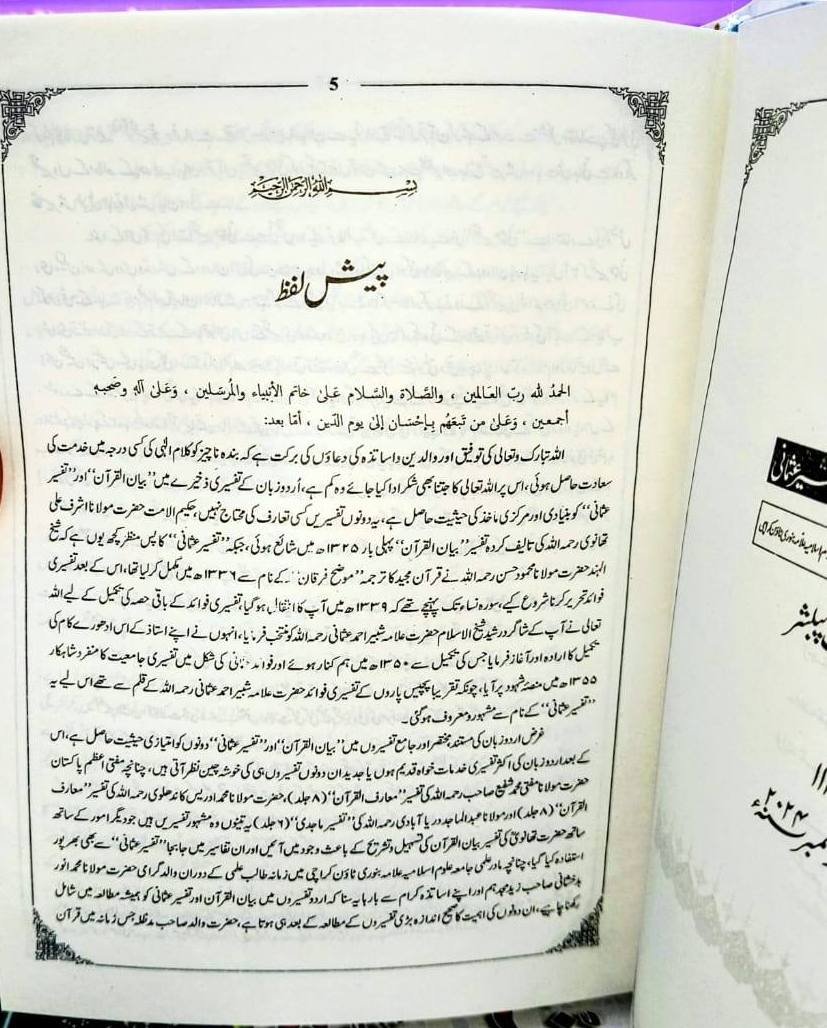 5
بسم الله الرحمن الرحيم
پیش لفظ
الحمدُ لله ربّ العالمين ، والصَّلاة والسَّلام عَلىٰ خاتم الأنبياء والمُرسَلين ، وَعَلىٰ آله وصَحبه
أجمعين ، وَعَلىٰ من تبعَهُم بإحسَان إلىٰ يوم الدّين ، أمّا بعد:
اللہ تبارک وتعالی کی توفیق اور والدین واساتذہ کی دعاؤں کی برکت ہے کہ بندہ ناچیز کو کلام الٰہی کی کسی درجہ میں خدمت کی
سعادت حاصل ہوئی، اس پر اللہ تعالی کا جتنا بھی شکر ادا کیا جائے وہ کم ہے، اُردو زبان کے تفسیری ذخیرے میں ”بیان القرآن“ اور ”تفسیر
عثمانی“ کو بنیادی اور مرکزی ماخذ کی حیثیت حاصل ہے، یہ دونوں تفسیریں کسی تعارف کی محتاج نہیں، حکیم الامت حضرت مولانا اشرف علی
تھانوی رحمہ اللہ کی تالیف کردہ تفسیر ”بیان القرآن“ پہلی بار ۱۳۲۵ھ میں شائع ہوئی، جبکہ ”تفسیر عثمانی“ کا پس منظر کچھ یوں ہے کہ شیخ
الہند حضرت مولانا محمود حسن رحمہ اللہ نے قرآن مجید کا ترجمہ ”موضح فرقان“ کے نام سے ۱۳۳۶ھ میں مکمل کر لیا تھا، اس کے بعد تفسیری
فوائد تحریر کرنا شروع کیے، سورہ نساء تک پہنچے تھے کہ ۱۳۳۹ھ میں آپ کا انتقال ہو گیا، تفسیری فوائد کے باقی حصہ کی تکمیل کے لیے اللہ
تعالی نے آپ کے شاگرد رشید شیخ الاسلام حضرت علامہ شبیر احمد عثمانی رحمہ اللہ کو منتخب فرمایا، انہوں نے اپنے استاذ کے اس ادھورے کام کی
تکمیل کا ارادہ اور آغاز فرمایا جس کی تکمیل سے ۱۳۵۰ھ میں ہم کنار ہوئے اور فوائد عثمانی کی شکل میں تفسیری جامعیت کا منفرد شاہکار
۱۳۵۵ھ میں منصۂ شہود پر آیا، چونکہ تقریباً پچیس پاروں کے تفسیری فوائد حضرت علامہ شبیر احمد عثمانی رحمہ اللہ کے قلم سے تھے اس لیے یہ
”تفسیر عثمانی“ کے نام سے مشہور و معروف ہو گئی۔
غرض اردو زبان کی مستند، مختصر اور جامع تفسیروں میں ”بیان القرآن“ اور ”تفسیر عثمانی“ دونوں کو امتیازی حیثیت حاصل ہے، اس
کے بعد اردو زبان کی اکثر تفسیری خدمات خواہ قدیم ہوں یا جدید ان دونوں تفسیروں ہی کی خوشہ چین نظر آتی ہیں، چنانچہ مفتی اعظم پاکستان
حضرت مولانا مفتی محمد شفیع صاحب رحمہ اللہ کی تفسیر ”معارف القرآن“ (۸ جلد)، حضرت مولانا محمد ادریس کاندھلوی رحمہ اللہ کی تفسیر ”معارف
القرآن“ (۸ جلد) اور مولانا عبد الماجد دریا آبادی رحمہ اللہ کی ”تفسیر ماجدی“ (۷ جلد) یہ تینوں وہ مشہور تفسیریں ہیں جو دیگر امور کے ساتھ
ساتھ حضرت تھانویؒ کی تفسیر بیان القرآن کی تسہیل و تشریح کے باعث وجود میں آئیں اور ان تفاسیر میں جابجا ”تفسیر عثمانی“ سے بھی بھرپور
استفادہ کیا گیا، چنانچہ مادر علمی جامعہ علوم اسلامیہ علامہ بنوری ٹاؤن کراچی میں زمانہ طالب علمی کے دوران والد گرامی حضرت مولانا محمد انور
بدخشانی صاحب زید مجدہم اور اپنے اساتذہ کرام سے بارہا یہ سنا کہ اردو تفسیروں میں بیان القرآن اور تفسیر عثمانی کو ہمیشہ مطالعہ میں شامل
رکھنا چاہیے، ان دونوں کی اہمیت کا صحیح اندازہ بڑی تفسیروں کے مطالعہ کے بعد ہی ہوتا ہے، حضرت والد صاحب مدظلہ جس زمانہ میں قرآن
۲۰۲۴